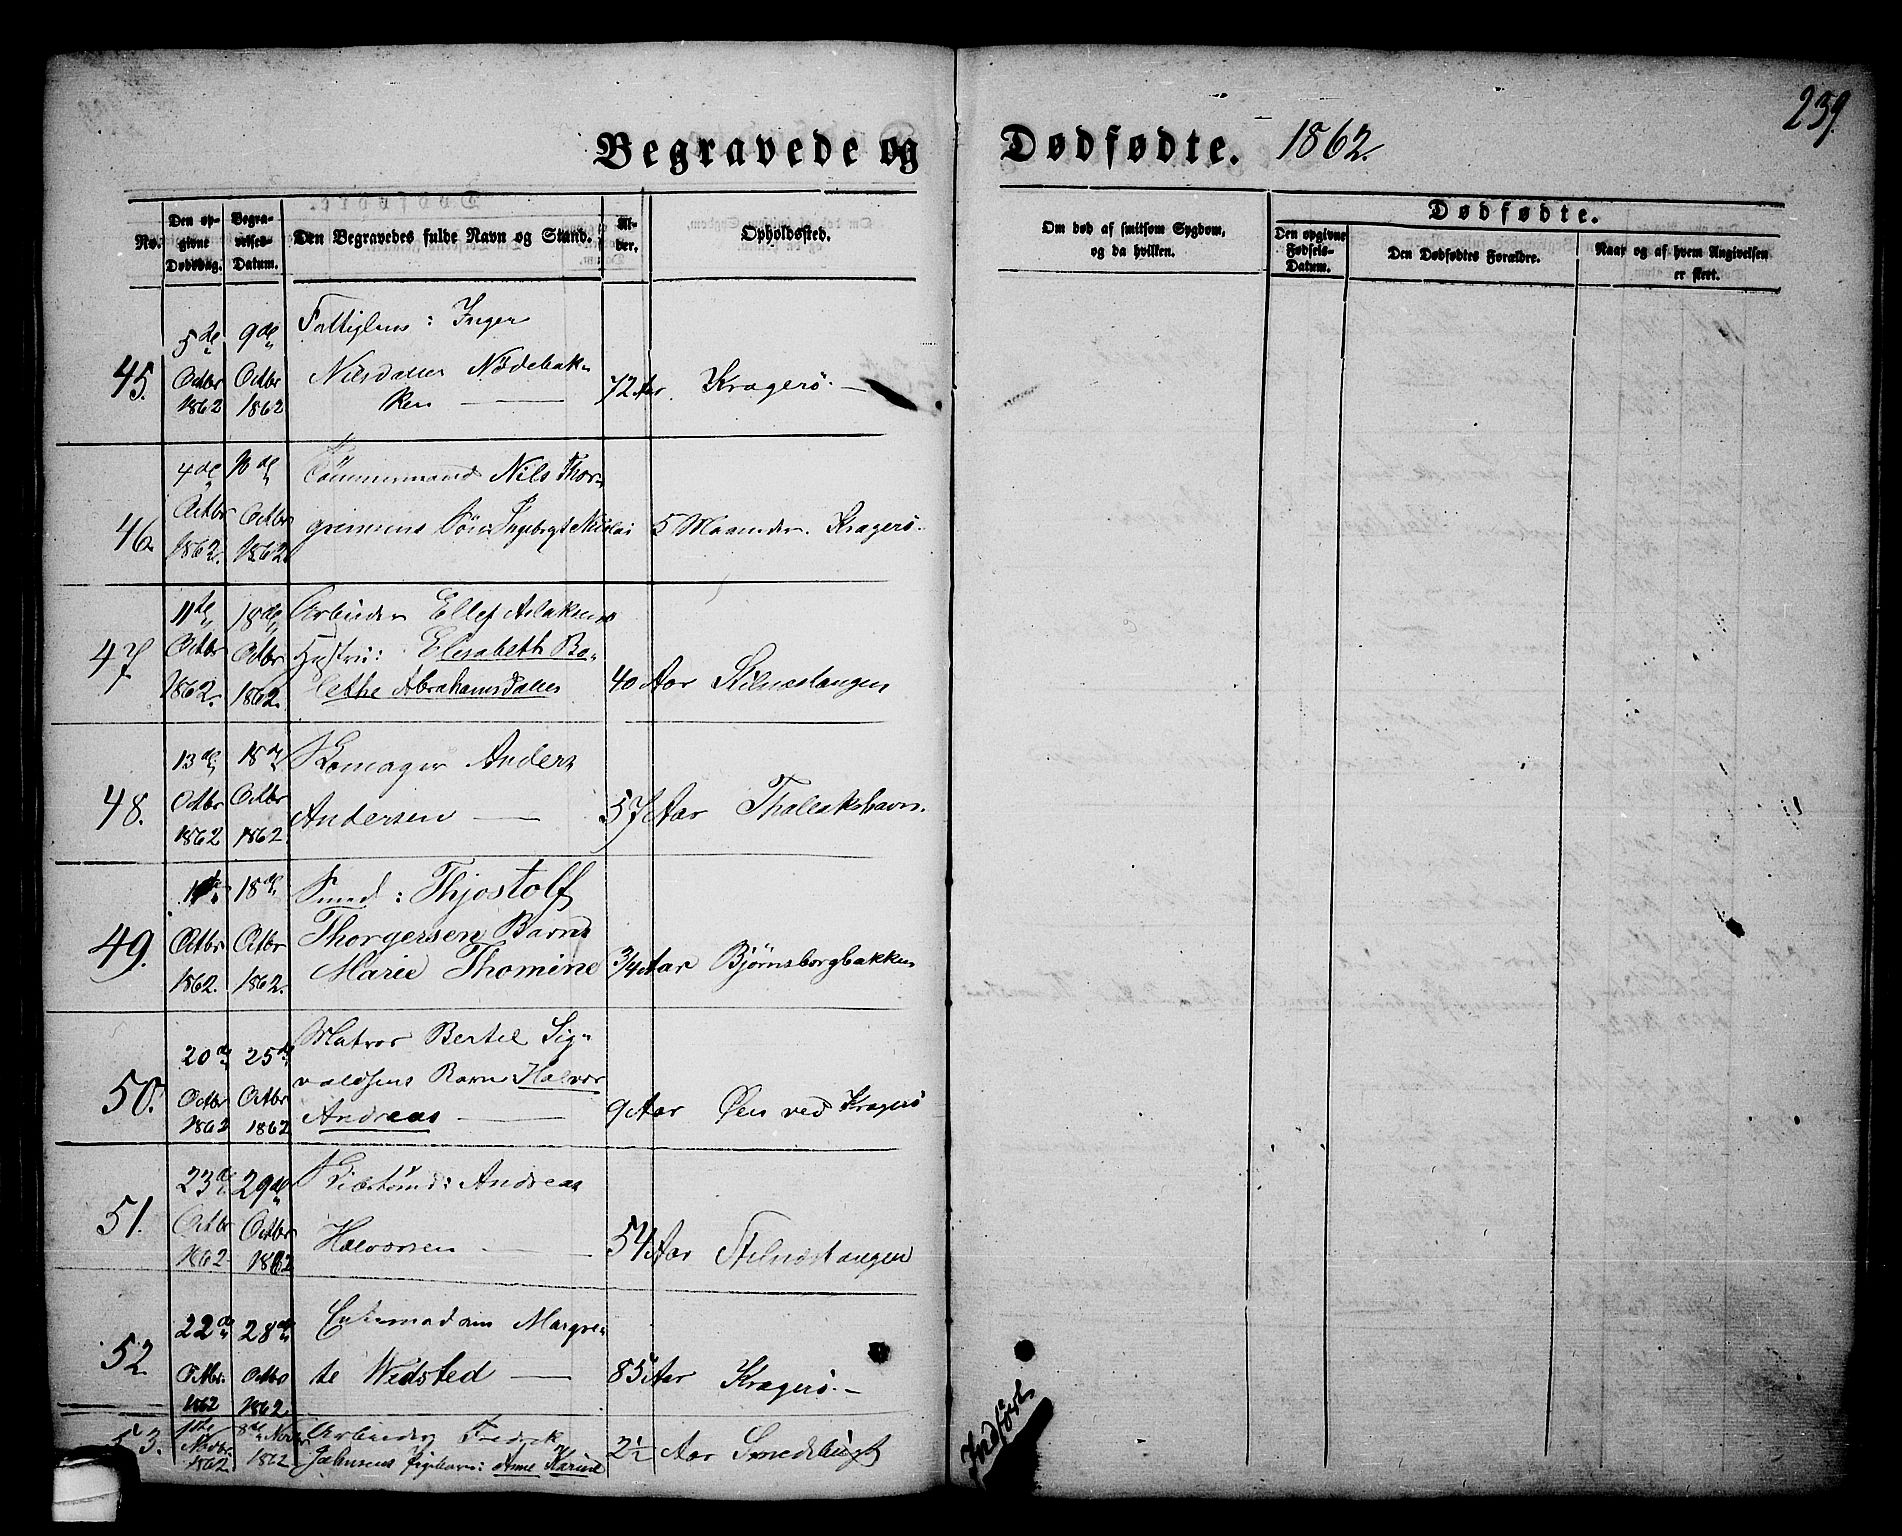 239.
Begravede og Dødfødte. 1862.
No.
Den op-
givne
Dødsdag.
Begra-
velses-
Datum.
Den Begravedes fulde Navn og Stand.
Al-
der.
Opholdssted.
Om død af smitsom Sygdom,
og da hvilken.
Dødfødte.
Den opgivne
Fødsels-
Datum.
Den Dødfødtes Forældre.
Naar og af hvem Angivelsen
er skeet.
45.
5te
Octbr
1862
9de
Octbr
1862
Fattiglem: Inger
Nilsdatter Nödebak-
ken
72 Aar
Kragerö.
46.
4de
Octbr
1862.
Octbr
1862.
Tömmermand Nils Thor-
grimsens Sön: Ingebregt Nicolai
5 Maaneder.
Kragerö.
47.
11te
Octbr
1862.
18de
Octbr
1862.
Arbeider Ellef Aslaksens
Hustru: Elisabeth Bo-
lethe Abrahamsdatter
40 Aar
Stilnestangen
48.
13de
Octbr
1862
18de
Octbr
1862.
Skomager Anders
Andersen
57 Aar
Thallakshavn.
49.
Octbr
1862.
18de
Octbr
1862.
Smed: Thjostolf
Thorgersen Barn
Marie Thomine
3/4 Aar
Bjørnsborgbakken
50.
20de
Octbr
1862
25de
Octbr
1862
Matros Bertel Sig-
valdsens Barn Halvor
Andreas
9 Aar
Øen ved Kragerö
51.
23de
Octbr
1862
29de
Octbr
1862
Andreas
Halvorsen
54 Aar
Stilnestangen
52.
22de
Octbr.
1862
28de
Octbr
1862.
Enkemadam Margre-
te Wedsted
85 Aar
Kragerö.
53.
1ste
Novbr.
1862
8de Novbr.
1862
Arbeider Fredrik
Johnsens Pigebarn: Anne Karine
2½ Aar
Smedsbugt
Indført